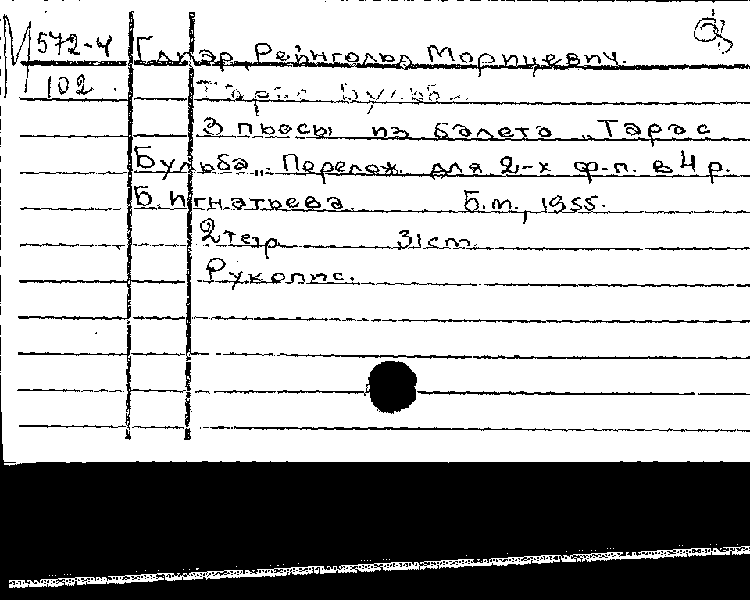 М 572-4 Глиэр, Рейнгольд Морицевич.
102. Тарас Бульба.
3 пьесы из балета „Тарас
Бульба„. Перелож. для 2-х ф-п. в 4 р.
Б. Игнатьева. Б.м., 1955.
2 тетр. 31 ст.
Рукопис.